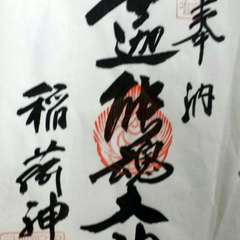 奉納
迦能魂大
稲荷神